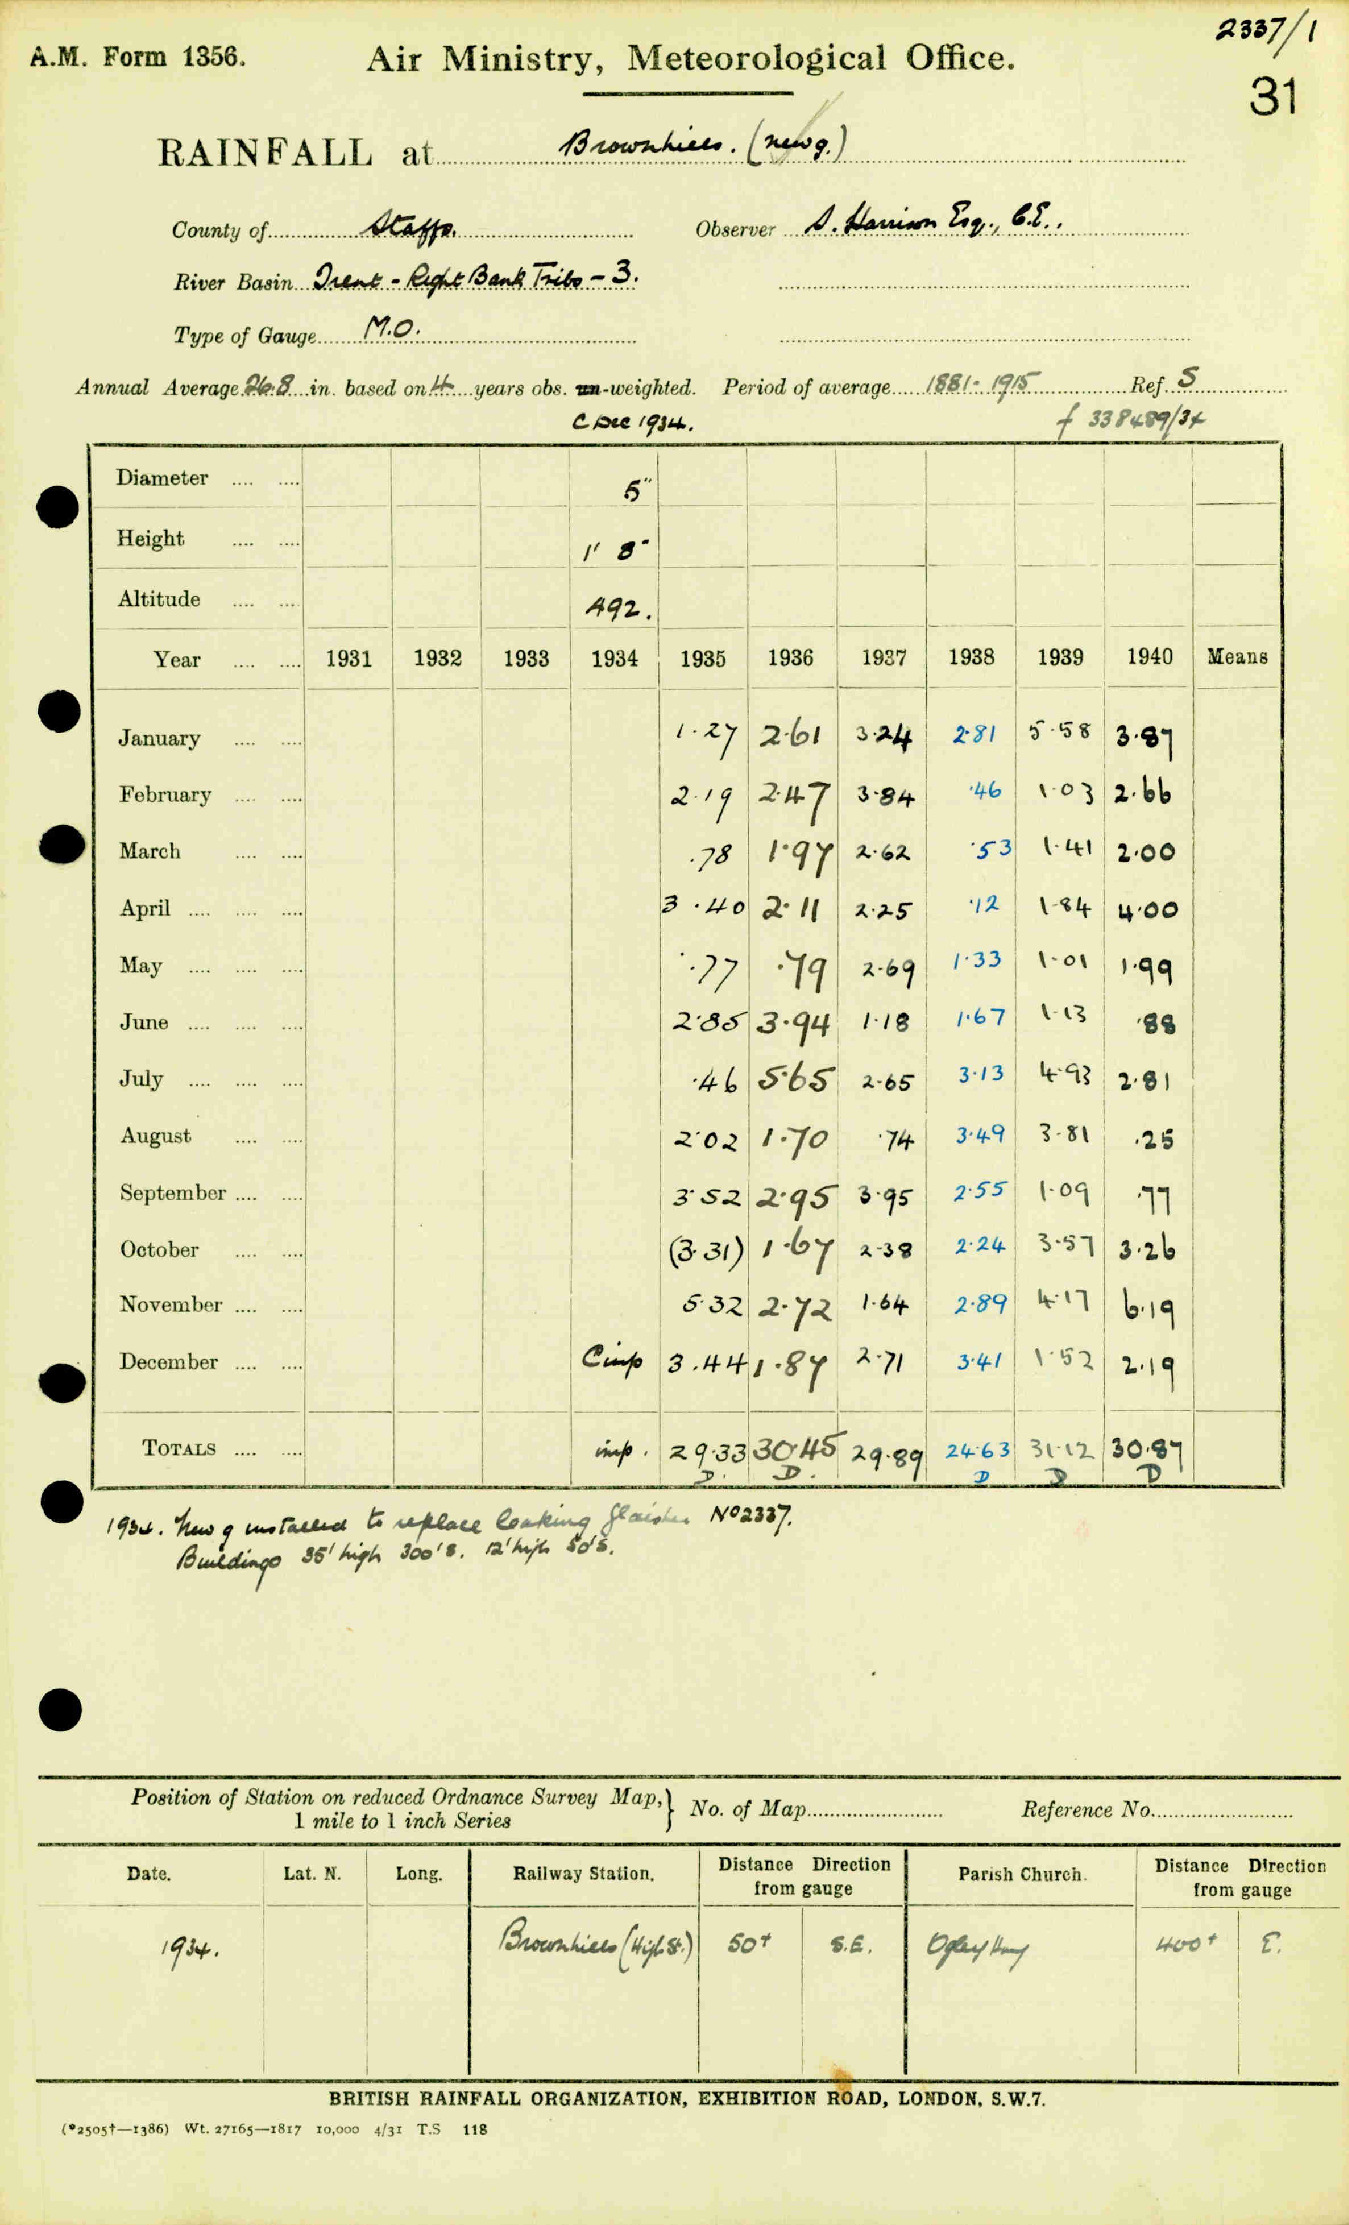 2337/1
A.M. Form 1356. Air Ministry, Meteorological Office.
31
RAINFALL at Brownhills. (new g.)
County of Staffs. Observer S. Harrison Esq., C.E.,
River Basin Trent - Right Bank Tribs - 3.
Type of Gauge M.O.
Annual Average 26.8 in. based on 4 years obs. un-weighted. Period of average 1881-1915 Ref. S
C Dec 1934. f 338489/34
Diameter .... .... 5"
Height .... .... 1' 8"
Altitude .... .... 492.
Year .... .... 1931 1932 1933 1934 1935 1936 1937 1938 1939 1940 Means
January .... .... 1.27 2.61 3.24 2.81 5.58 3.87
February .... .... 2.19 2.47 3.84 .46 1.03 2.66
March .... .... .78 1.97 2.62 .53 1.41 2.00
April .... .... .... 3.40 2.11 2.25 .12 1.84 4.00
May .... .... .... .77 .79 2.69 1.33 1.01 1.99
June .... .... .... 2.85 3.94 1.18 1.67 1.13 .88
July .... .... .... .46 5.65 2.65 3.13 4.93 2.81
August .... .... 2.02 1.70 .74 3.49 3.81 .25
September .... .... 3.52 2.95 3.95 2.55 1.09 .77
October .... .... (3.31) 1.67 2.38 2.24 3.57 3.26
November .... .... 5.32 2.72 1.64 2.89 4.17 6.19
December .... .... C imp 3.44 1.87 2.71 3.41 1.52 2.19
TOTALS .... .... imp. 29.33 30.45 29.89 24.63 31.12 30.87
D. D. D D D
1934. New g installed to replace leaking Glaisher No 2337.
Buildings 35' high 300' S. 12' high 50' S.
Position of Station on reduced Ordnance Survey Map, } No. of Map Reference No.
1 mile to 1 inch Series
Date. Lat. N. Long. Railway Station. Distance Direction from gauge Parish Church. Distance Direction from gauge
1934. Brownhills (High St.) 50+ S.E. Ogley Hay 400+ E.
BRITISH RAINFALL ORGANIZATION, EXHIBITION ROAD, LONDON, S.W.7.
(*2505†—1386) Wt. 27165—1817 10,000 4/31 T.S 118